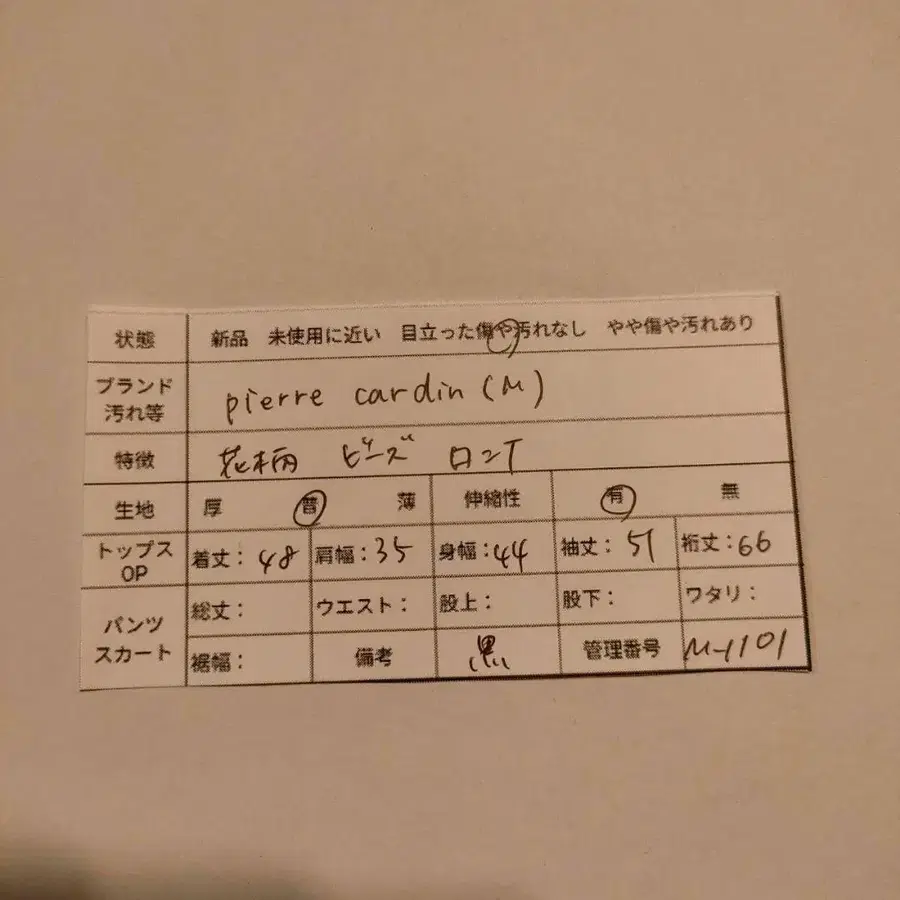 状態 新品 未使用に近い 目立った傷や汚れなし やや傷や汚れあり
ブランド
汚れ等 pierre cardin (M)
特徴 花柄 ビーズ ロンT
生地 厚 普 薄 伸縮性 有 無
トップス
OP 着丈:48 肩幅:35 身幅:44 袖丈:51 裄丈:66
パンツ
スカート 総丈: ウエスト: 股上: 股下: ワタリ:
裾幅: 備考 黒 管理番号 M-1101